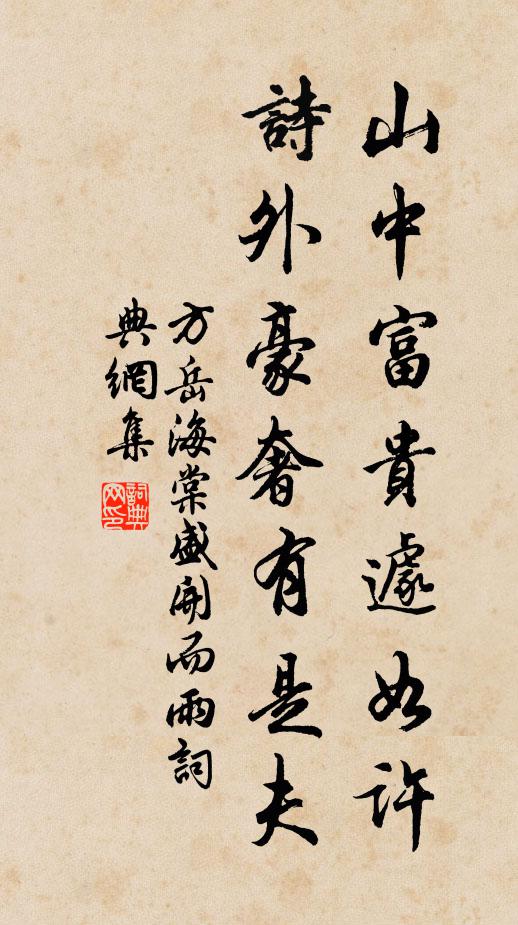 山中富貴遽如許
詩外豪奢有是夫
方岳海棠盛開而雨詞
典網集
詞典网印